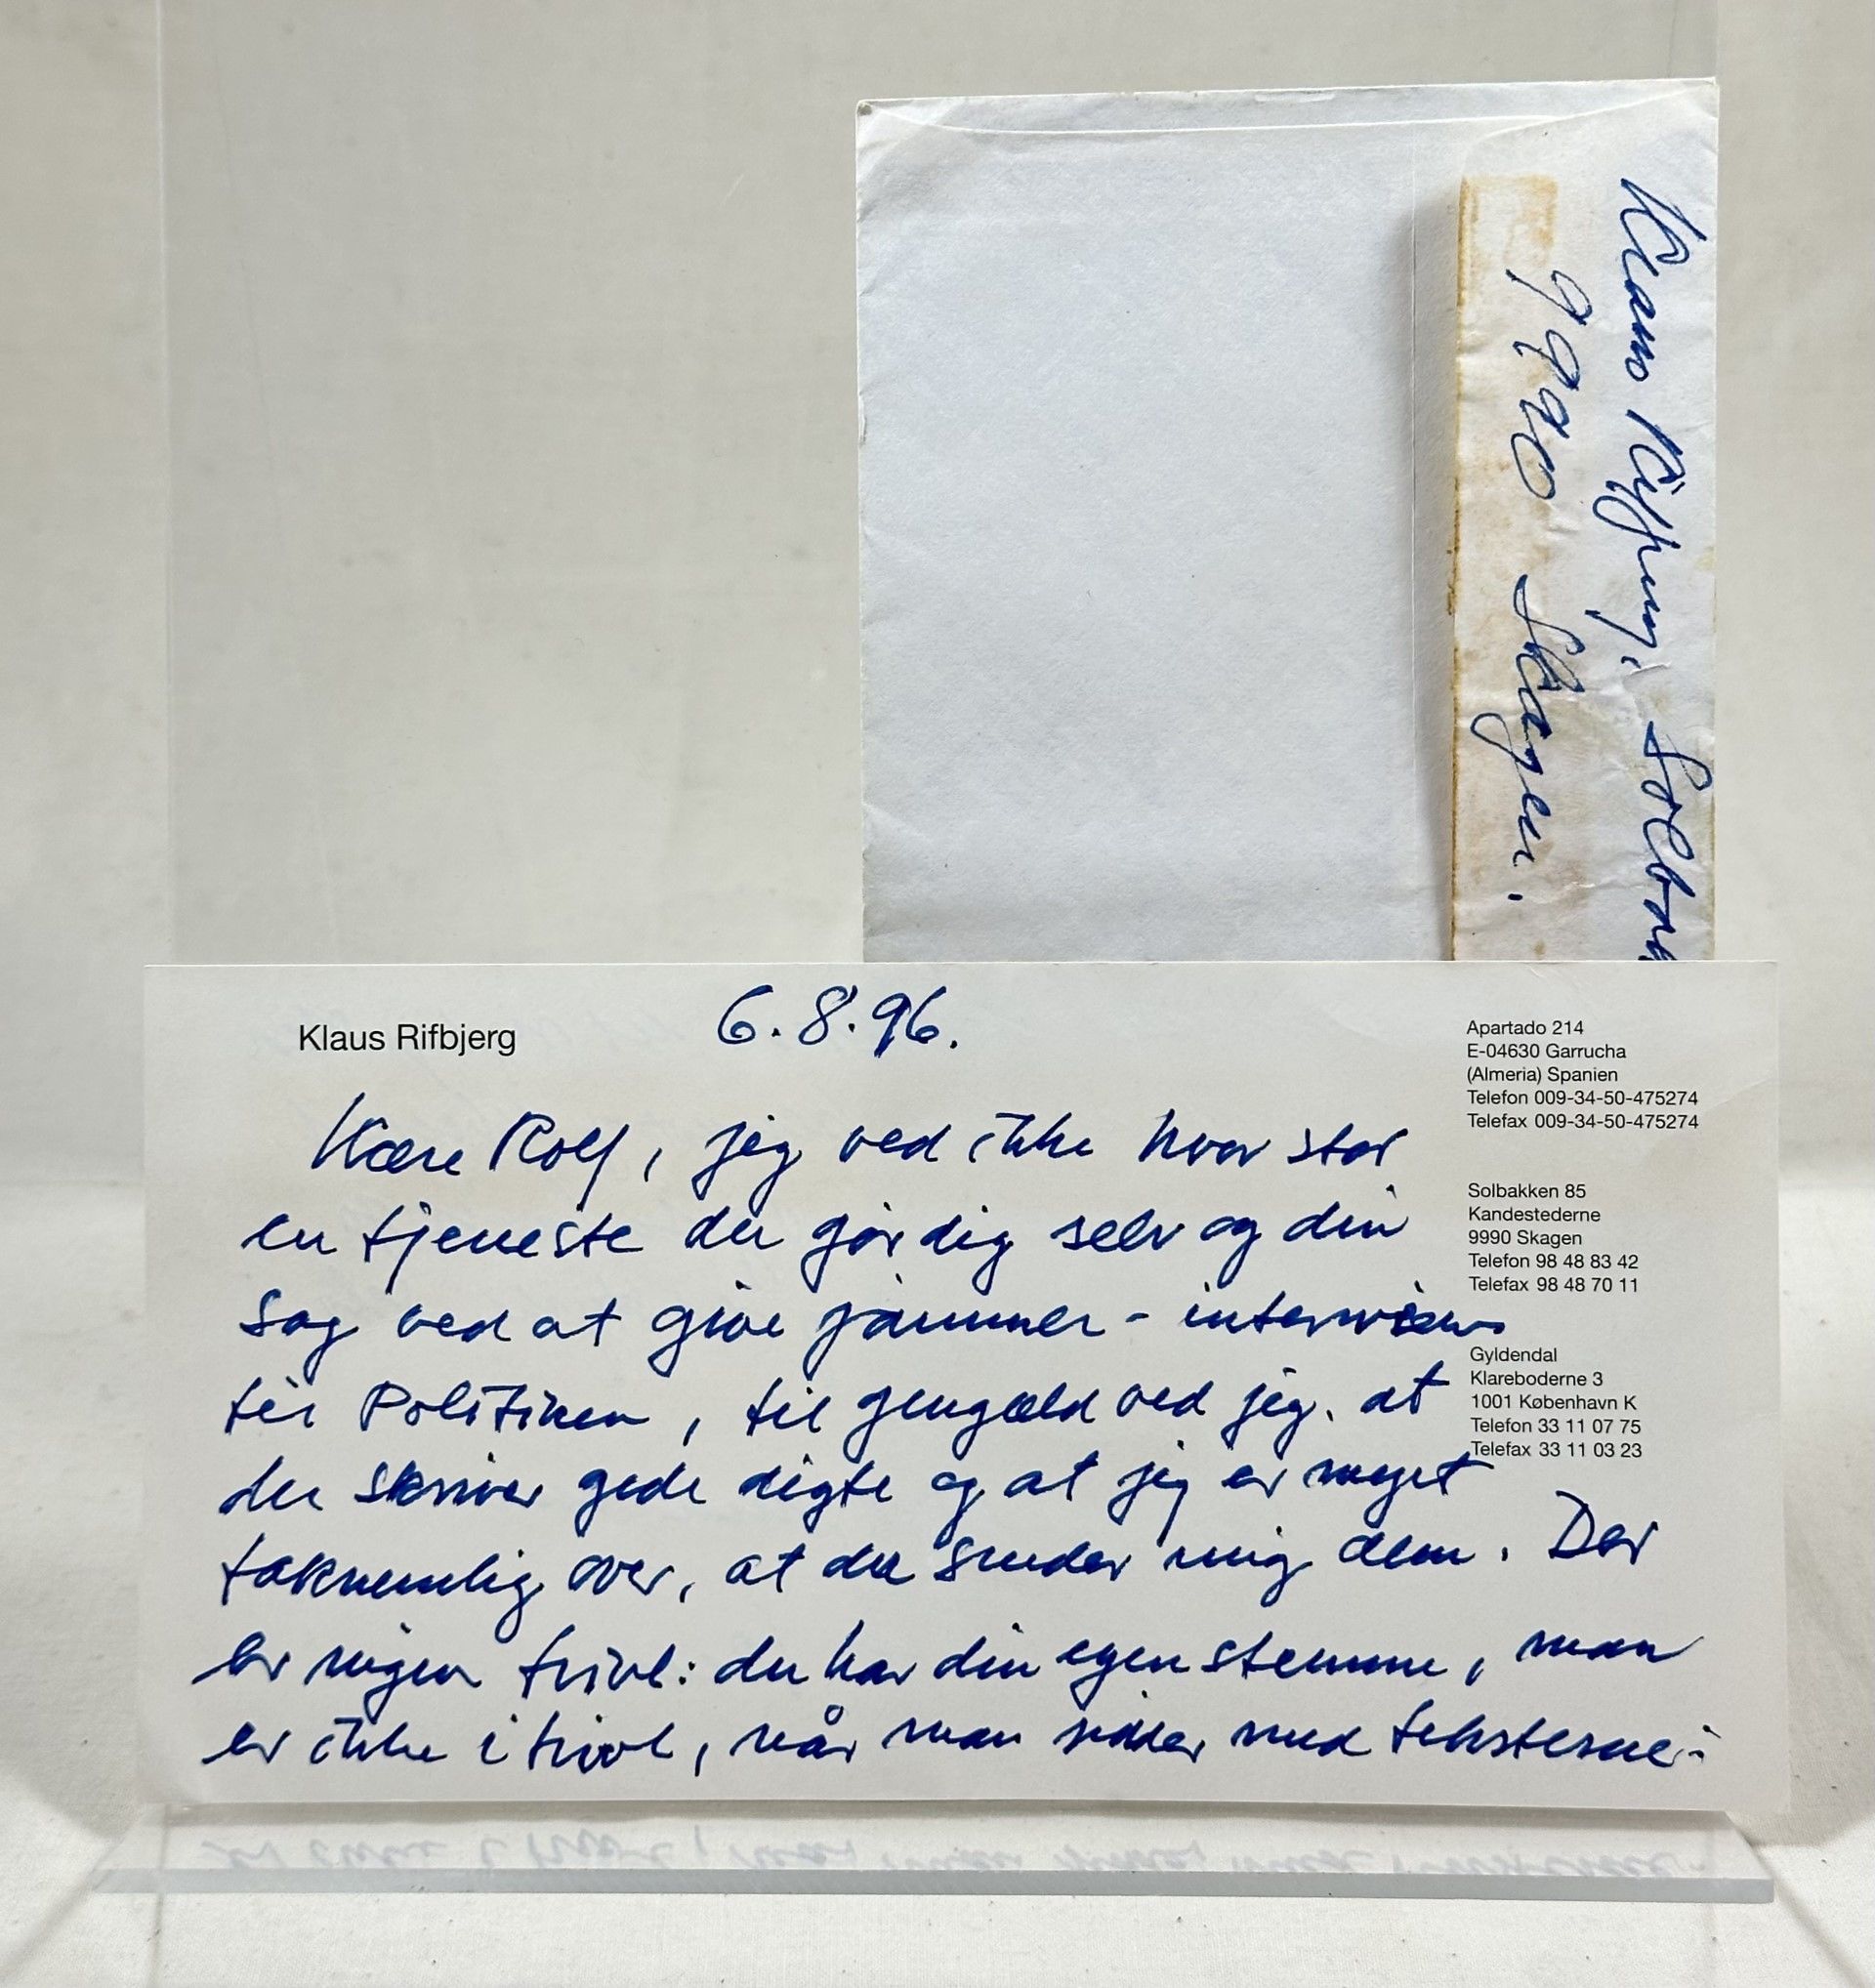 Klaus Rifbjerg, Solbak
9990 Skagen.
Klaus Rifbjerg
6.8.96.
Apartado 214
E-04630 Garrucha
(Almeria) Spanien
Telefon 009-34-50-475274
Telefax 009-34-50-475274
Solbakken 85
Kandestederne
9990 Skagen
Telefon 98 48 83 42
Telefax 98 48 70 11
Gyldendal
Klareboderne 3
1001 København K
Telefon 33 11 07 75
Telefax 33 11 03 23
Kære Rolf, jeg ved ikke hvor stor
en tjeneste du gør dig selv og din
sag ved at give jammer-interviews
til Politiken, til gengæld ved jeg, at
du skriver gode digte og at jeg er meget
taknemlig over, at du sender mig dem. Der
er ingen tvivl: du har din egen stemme, man
er ikke i tvivl, når man sidder med teksterne: